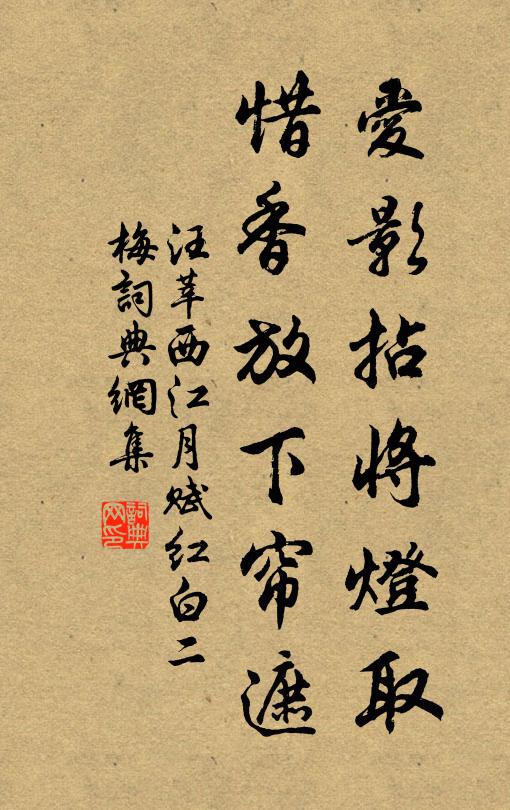 愛影拈將燈取
惜香放下帘遮
汪莘西江月賦红白二
梅詞典網集
詞典网印